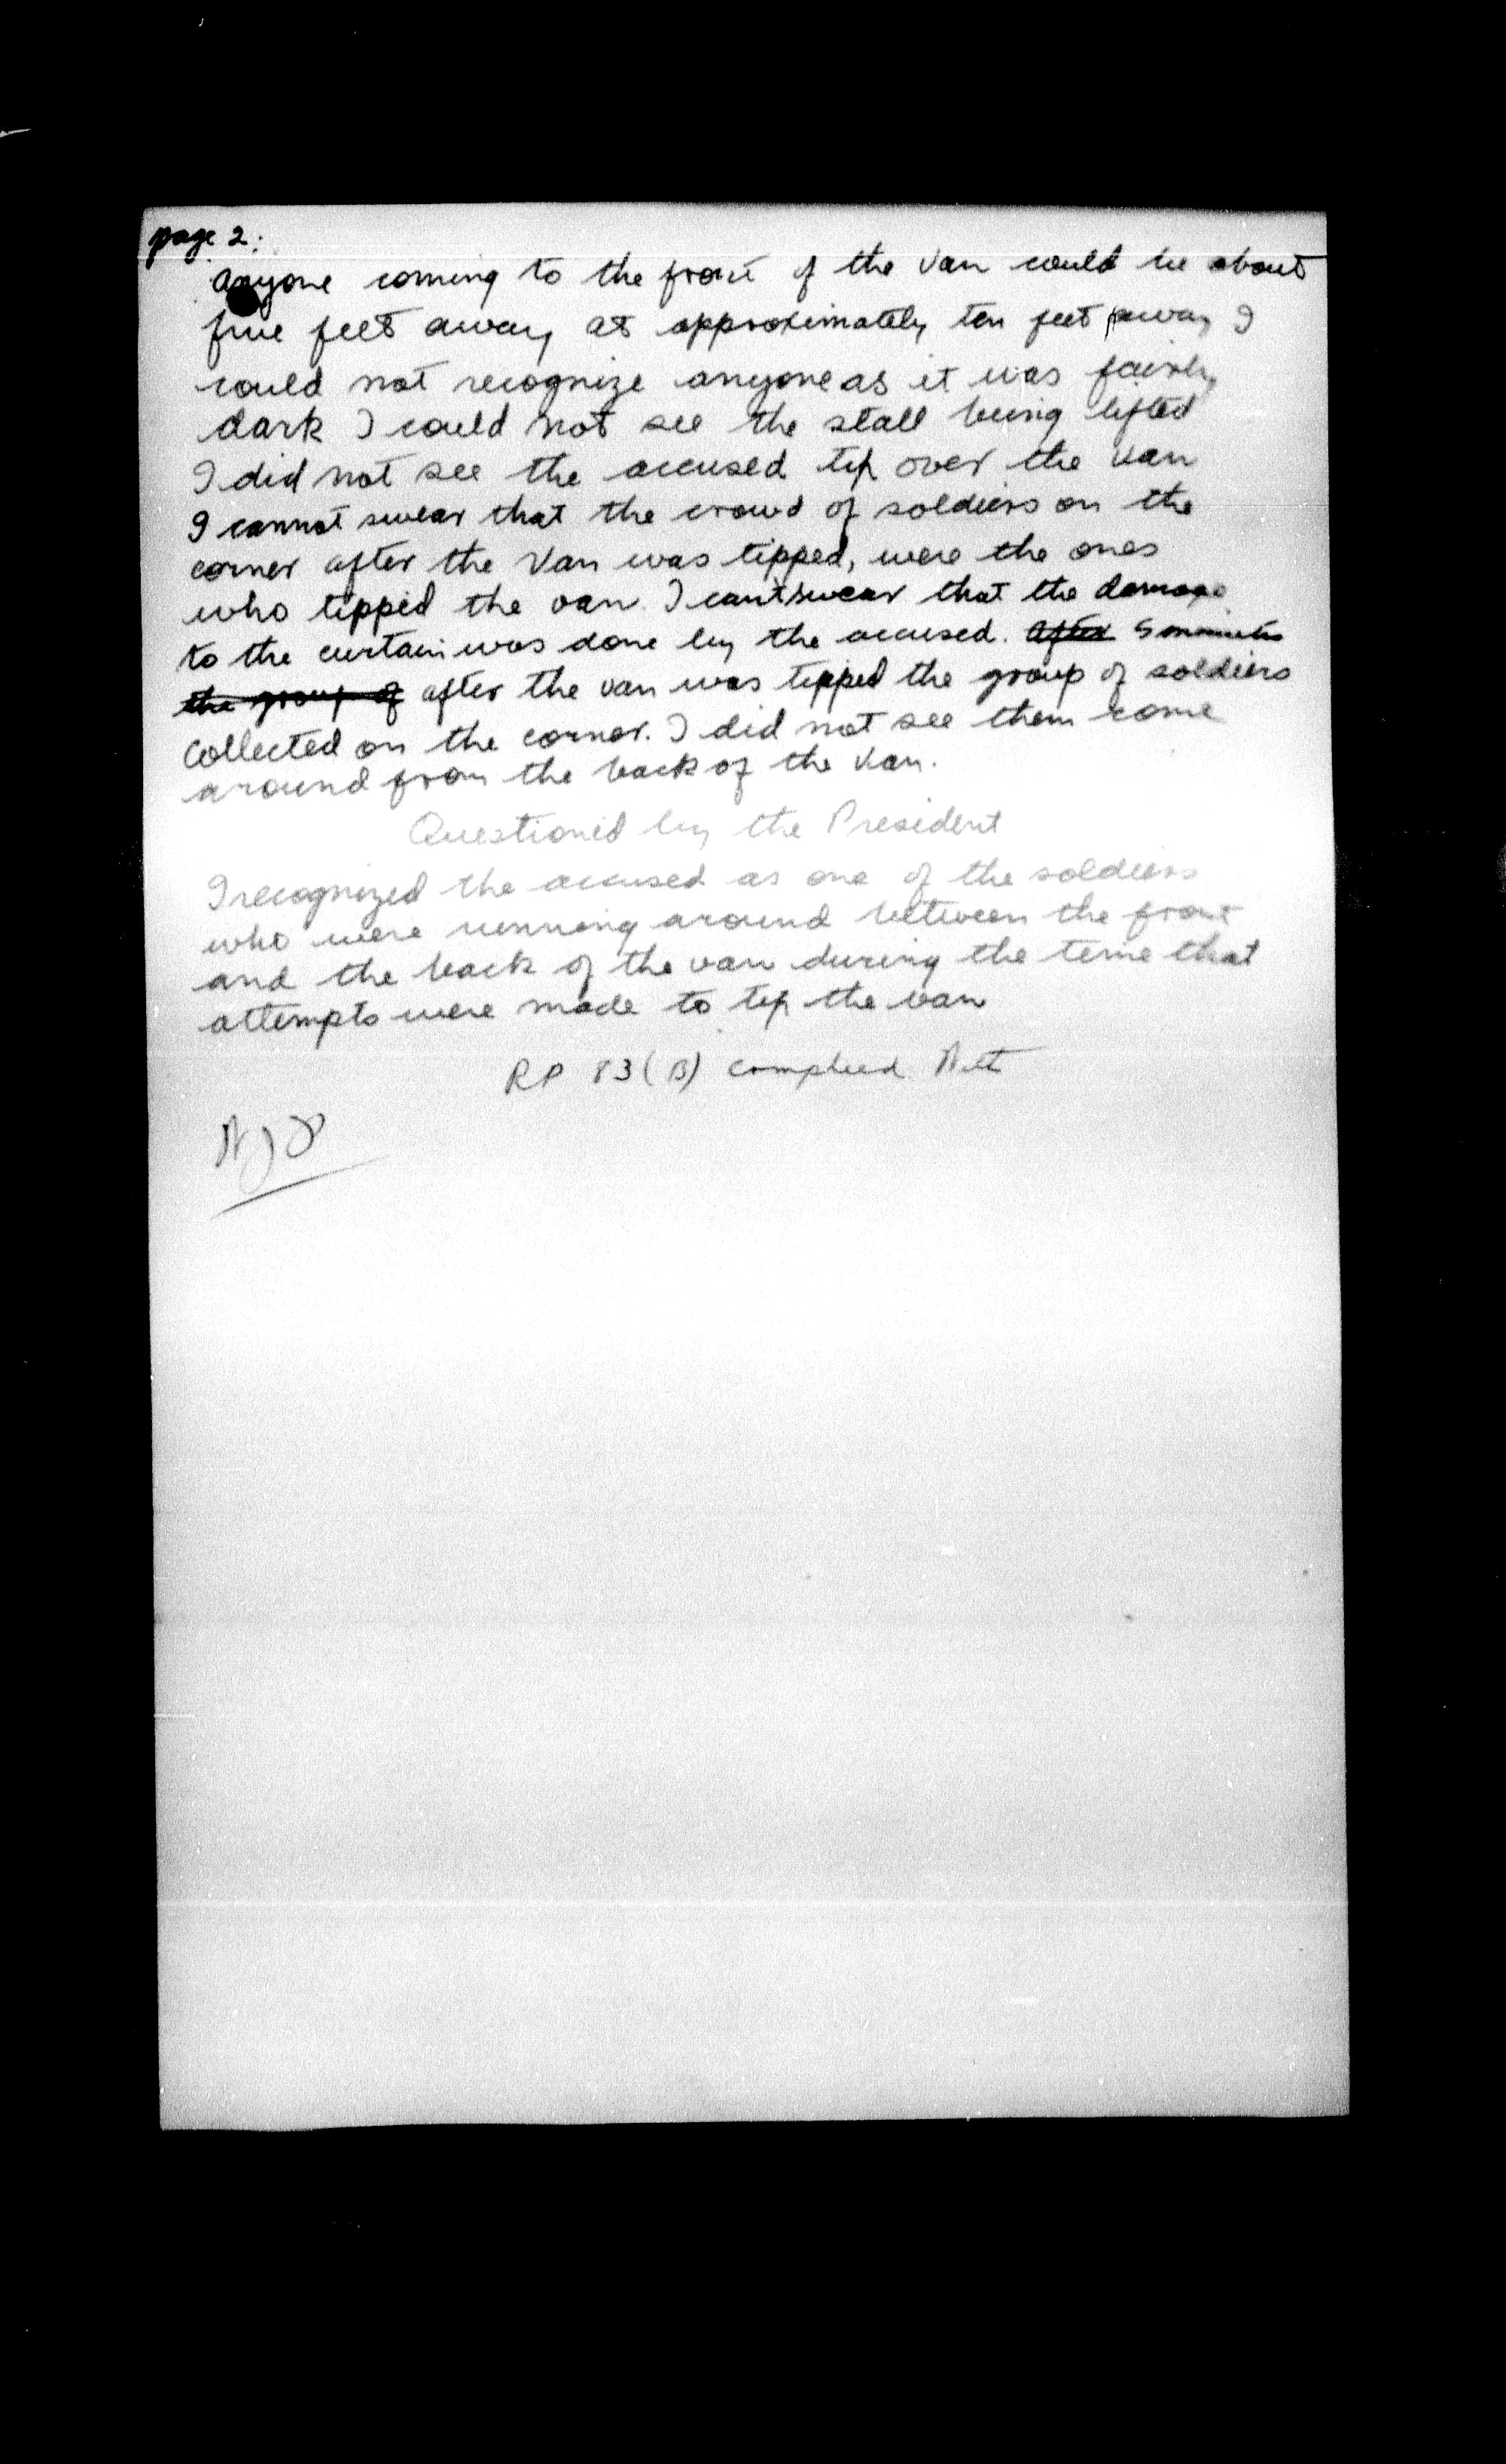 page 2:
Anyone coming to the front of the Van could be about
five feet away, at approximately ten feet away I
could not recognize anyone as it was fairly
dark I could not see the stall being lifted
I did not see the accused tip over the van
I cannot swear that the crowd of soldiers on the
corner after the Van was tipped, were the ones
who tipped the van. I cant swear that the damage
to the curtain was done by the accused. After 5 minutes
the group of after the van was tipped the group of soldiers
collected on the corner. I did not see them come
around from the back of the Van.
Questioned by the President
I recognized the accused as one of the soldiers
who were running around between the front
and the back of the van during the time that
attempts were made to tip the van
RP 83(B) complied